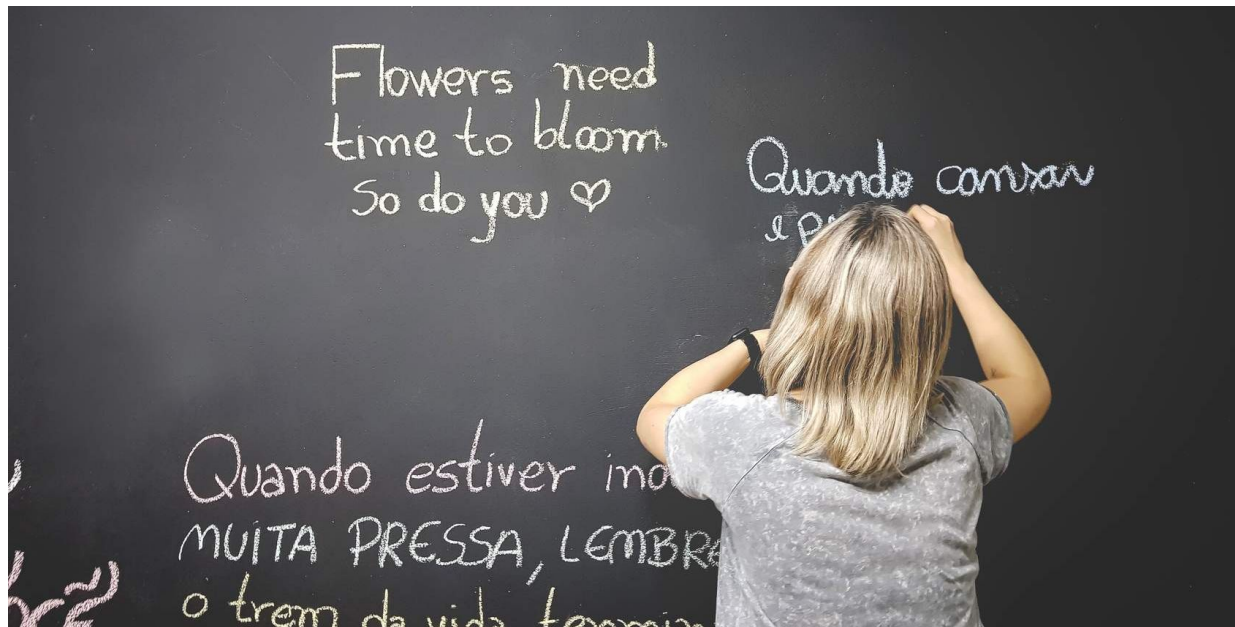 Flowers need
time to bloom
so do you ♡
Quando cansar
e
Quando estiver
MUITA PRESSA,
o trem da vida